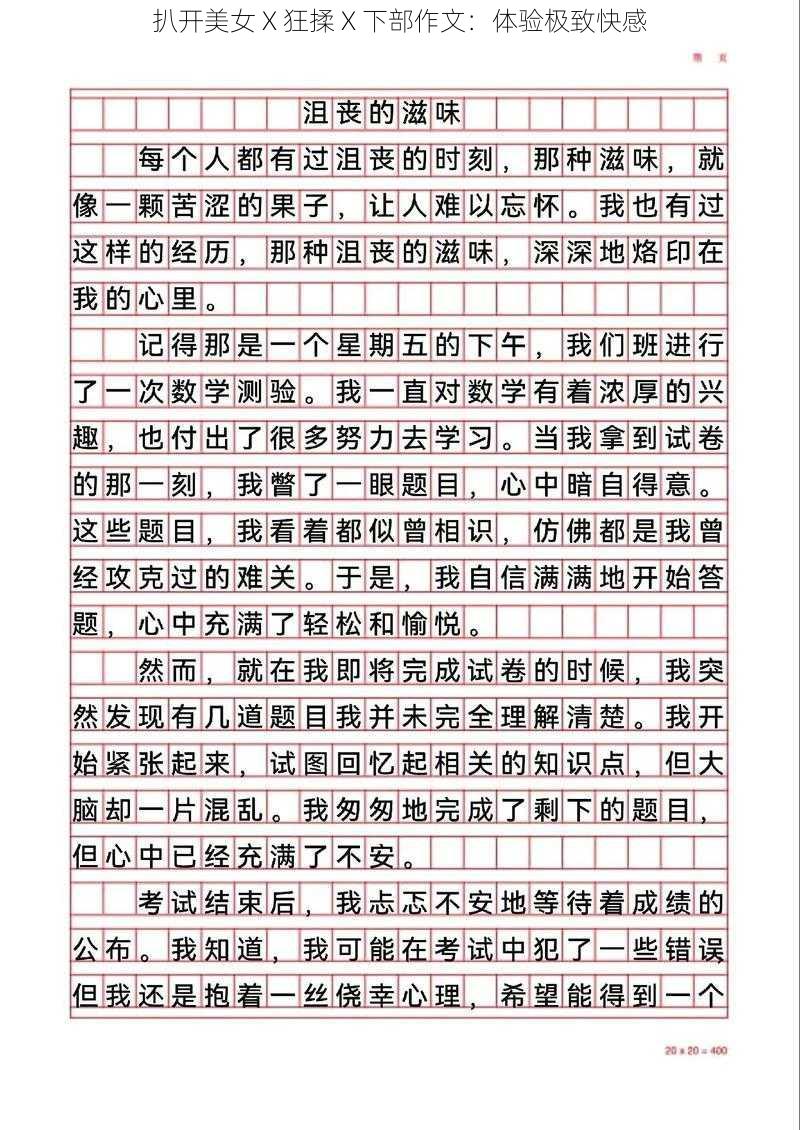 扒开美女 X 狂揉 X 下部作文：体验极致快感
第 页
沮丧的滋味
每个人都有过沮丧的时刻，那种滋味，就
像一颗苦涩的果子，让人难以忘怀。我也有过
这样的经历，那种沮丧的滋味，深深地烙印在
我的心里。
记得那是一个星期五的下午，我们班进行
了一次数学测验。我一直对数学有着浓厚的兴
趣，也付出了很多努力去学习。当我拿到试卷
的那一刻，我瞥了一眼题目，心中暗自得意。
这些题目，我看着都似曾相识，仿佛都是我曾
经攻克过的难关。于是，我自信满满地开始答
题，心中充满了轻松和愉悦。
然而，就在我即将完成试卷的时候，我突
然发现有几道题目我并未完全理解清楚。我开
始紧张起来，试图回忆起相关的知识点，但大
脑却一片混乱。我匆匆地完成了剩下的题目，
但心中已经充满了不安。
考试结束后，我忐忑不安地等待着成绩的
公布。我知道，我可能在考试中犯了一些错误，
但我还是抱着一丝侥幸心理，希望能得到一个
20 x 20 = 400